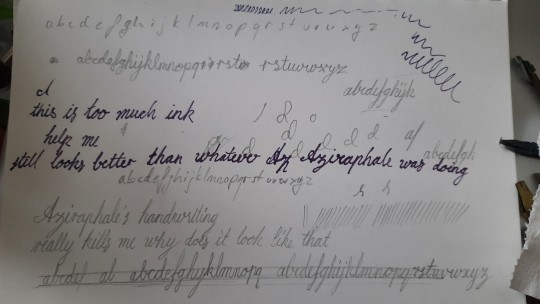 abcdefghijklmnopqrstuvwxyz
abcdefghijklmnopqrst rstuvwxyz
abcdefghijk
d
this is too much ink
help me
still looks better than whatever Az Aziraphale was doing
abcdefgh
abcdefghijklmnopqrstuvwxyz
Aziraphale's handwriting
really kills me why does it look like that
abcdef ab abcdefghijklmnopq abcdefghijklmnopqrstuvwxyz